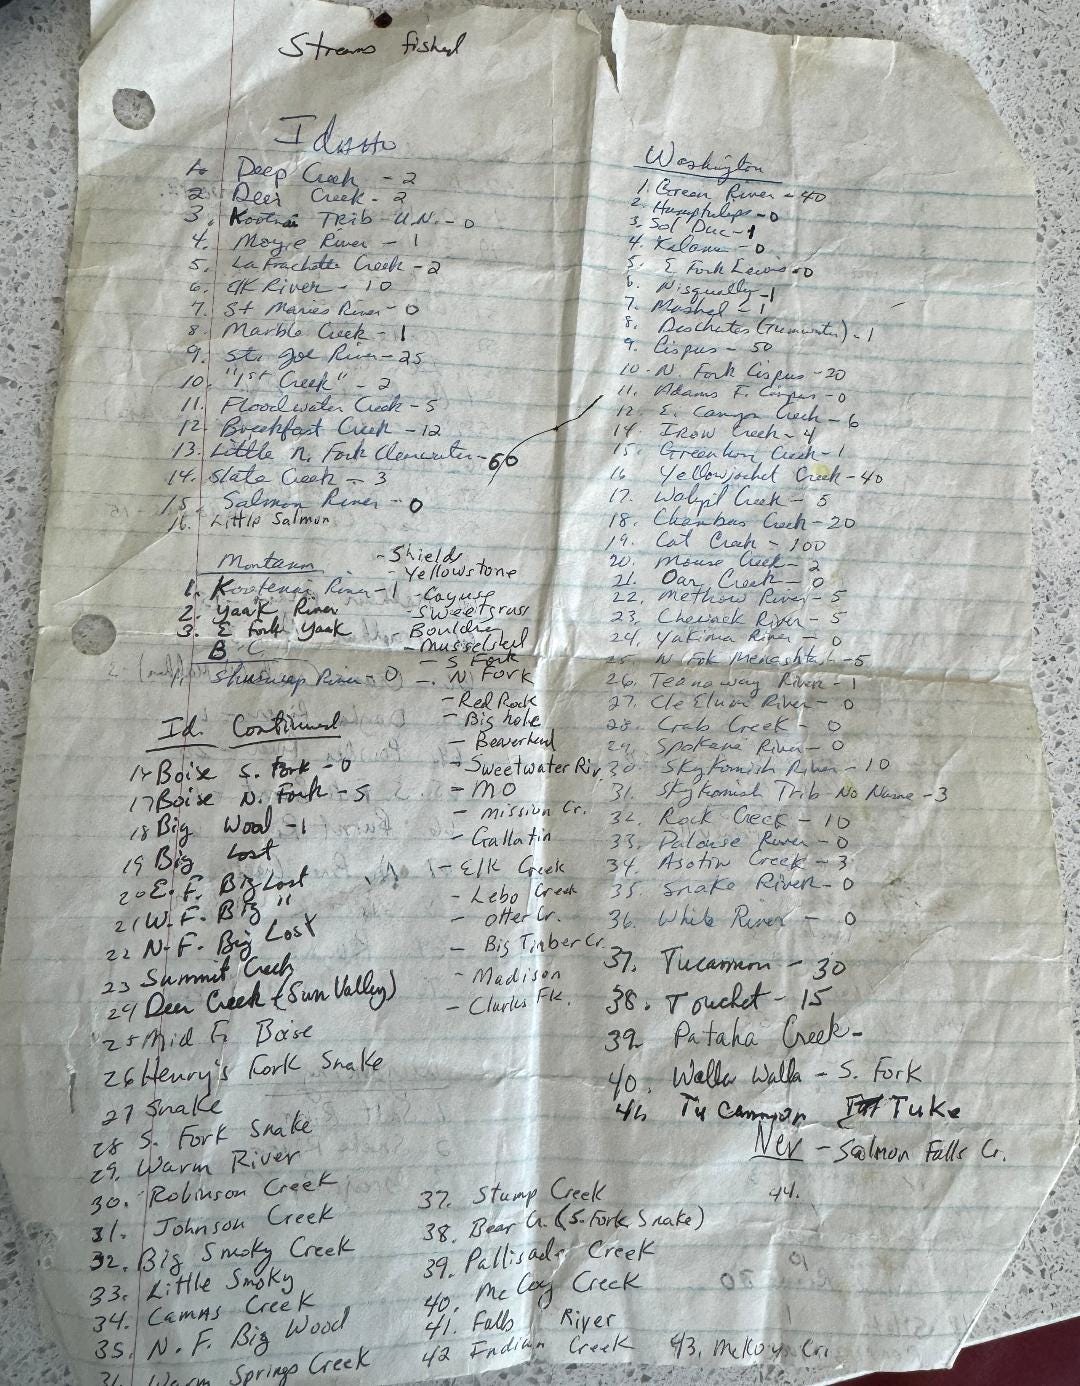 Streams fished
Idaho
1. Deep Creek - 2
2. Deer Creek - 2
3. Kootnai Trib U.N. - 0
4. Moyie River - 1
5. La Creek - 2
6. River - 10
7. St Maries River - 0
8. Marble Creek - 1
9. St. Joe River - 25
10. "1st Creek" - 2
11. Floodwater Creek - 5
12. Breakfast Creek - 12
13. Little N. Fork Clearwater - 60
14. Slate Creek - 3
15. Salmon River - 0
16. Little Salmon
Montana
1. Kootenai River - 1
2. Yaak River
3. E Fork Yaak
B C
1. Shuswap River - 0
- Shields
- Yellowstone
- Cayuse
- Sweetgrass
Boulder
- Musselshell
- S Fork
- N Fork
- Red Rock
- Big hole
- Beaverhead
- Sweetwater Riv.
- MO
- Mission Cr.
- Gallatin
- Elk Creek
- Lebo Creek
- Otter Cr.
- Big Timber Cr.
- Madison
- Clarks Fk.
Id. Continued
16 Boise S. Fork - 0
17 Boise N. Fork - 5
18 Big Wood - 1
19 Big Lost
20 E. F. Big Lost
21 W. F. Big "
22 N. F. Big Lost
23 Summit Creek
24 Deer Creek (Sun Valley)
25 Mid F. Boise
26 Henry's Fork Snake
27 Snake
28 S. Fork Snake
29. Warm River
30. Robinson Creek
31. Johnson Creek
32. Big Smoky Creek
33. Little Smoky
34. Camas Creek
35. N. F. Big Wood
36 Warm Springs Creek
37. Stump Creek
38. Bear Cr. (S. Fork Snake)
39. Pallisade Creek
40. McCoy Creek
41. Falls River
42 Indian Creek
43. McKoy Cr.
Washington
1. Green River - 40
2. Humptulips - 0
3. Sol Duc - 1
4. Kalama - 0
5. E Fork Lewis - 0
6. Nisqually - 1
7. Mashel - 1
8. Deschutes (Tumwater) - 1
9. Cispus - 50
10. N Fork Cispus - 20
11. Adams F. Cispus - 0
12. E. Canyon Creek - 6
14. Iron Creek - 4
15. Greenhorn Creek - 1
16 Yellowjacket Creek - 40
17. Walupt Creek - 5
18. Chambers Creek - 20
19. Cat Creek - 100
20. Mouse Creek - 2
21. Oar Creek - 0
22. Methow River - 5
23. Chewack River - 5
24. Yakima River - 0
25. N Fok - 5
26. Teanaway River - 1
27. Cle Elum River - 0
28. Crab Creek - 0
29. Spokane River - 0
30. Skykomish River - 10
31. Skykomish Trib - No Name - 3
32. Rock Creek - 10
33. Palouse River - 0
34. Asotin Creek - 3
35. Snake River - 0
36. White River - 0
37. Tucannon - 30
38. Touchet - 15
39. Pataha Creek -
40. Walla Walla - S. Fork
41. Tucannon Tuke
Nev - Salmon Falls Cr.
44.